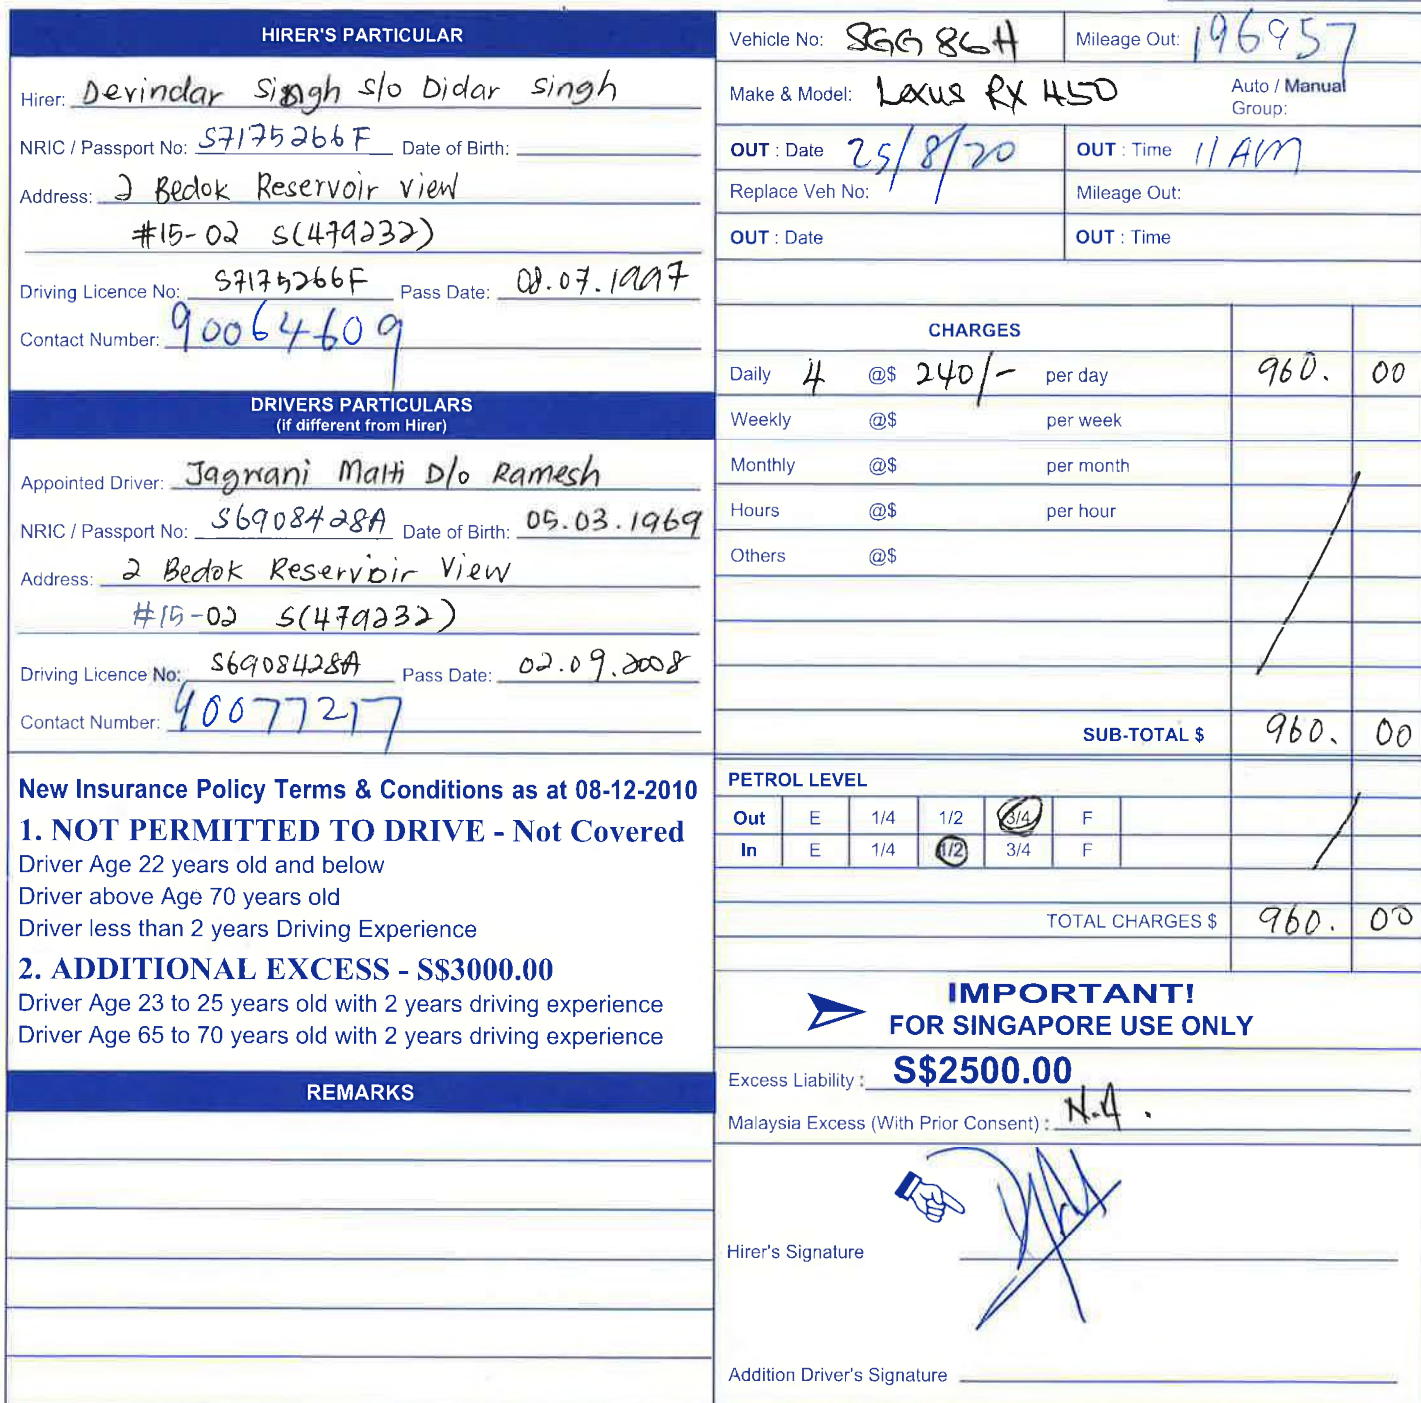 HIRER'S PARTICULAR
Hirer: Devindar Singh s/o Didar Singh
NRIC / Passport No: S7175266F Date of Birth:
Address: 2 Bedok Reservoir View
#15-02 S(479232)
Driving Licence No: S7175266F Pass Date: 08.07.1997
Contact Number: 90064609
DRIVERS PARTICULARS
(if different from Hirer)
Appointed Driver: Jagwani Malti D/o Ramesh
NRIC / Passport No: S6908428A Date of Birth: 05.03.1969
Address: 2 Bedok Reservoir View
#15-02 S(479232)
Driving Licence No: S6908428A Pass Date: 02.09.2008
Contact Number: 90077217
New Insurance Policy Terms & Conditions as at 08-12-2010
1. NOT PERMITTED TO DRIVE - Not Covered
Driver Age 22 years old and below
Driver above Age 70 years old
Driver less than 2 years Driving Experience
2. ADDITIONAL EXCESS - S$3000.00
Driver Age 23 to 25 years old with 2 years driving experience
Driver Age 65 to 70 years old with 2 years driving experience
REMARKS
Vehicle No: SGG 86H Mileage Out: 196957
Make & Model: Lexus RX 450 Auto / Manual
Group:
OUT : Date 25/8/20 OUT : Time 11 AM
Replace Veh No: Mileage Out:
OUT : Date OUT : Time
CHARGES
Daily 4 @$ 240/- per day 960. 00
Weekly @$ per week
Monthly @$ per month
Hours @$ per hour
Others @$
SUB-TOTAL $ 960. 00
PETROL LEVEL
Out E 1/4 1/2 3/4 F
In E 1/4 1/2 3/4 F
TOTAL CHARGES $ 960. 00
IMPORTANT!
FOR SINGAPORE USE ONLY
Excess Liability : S$2500.00
Malaysia Excess (With Prior Consent) : N.A.
Hirer's Signature
Addition Driver's Signature